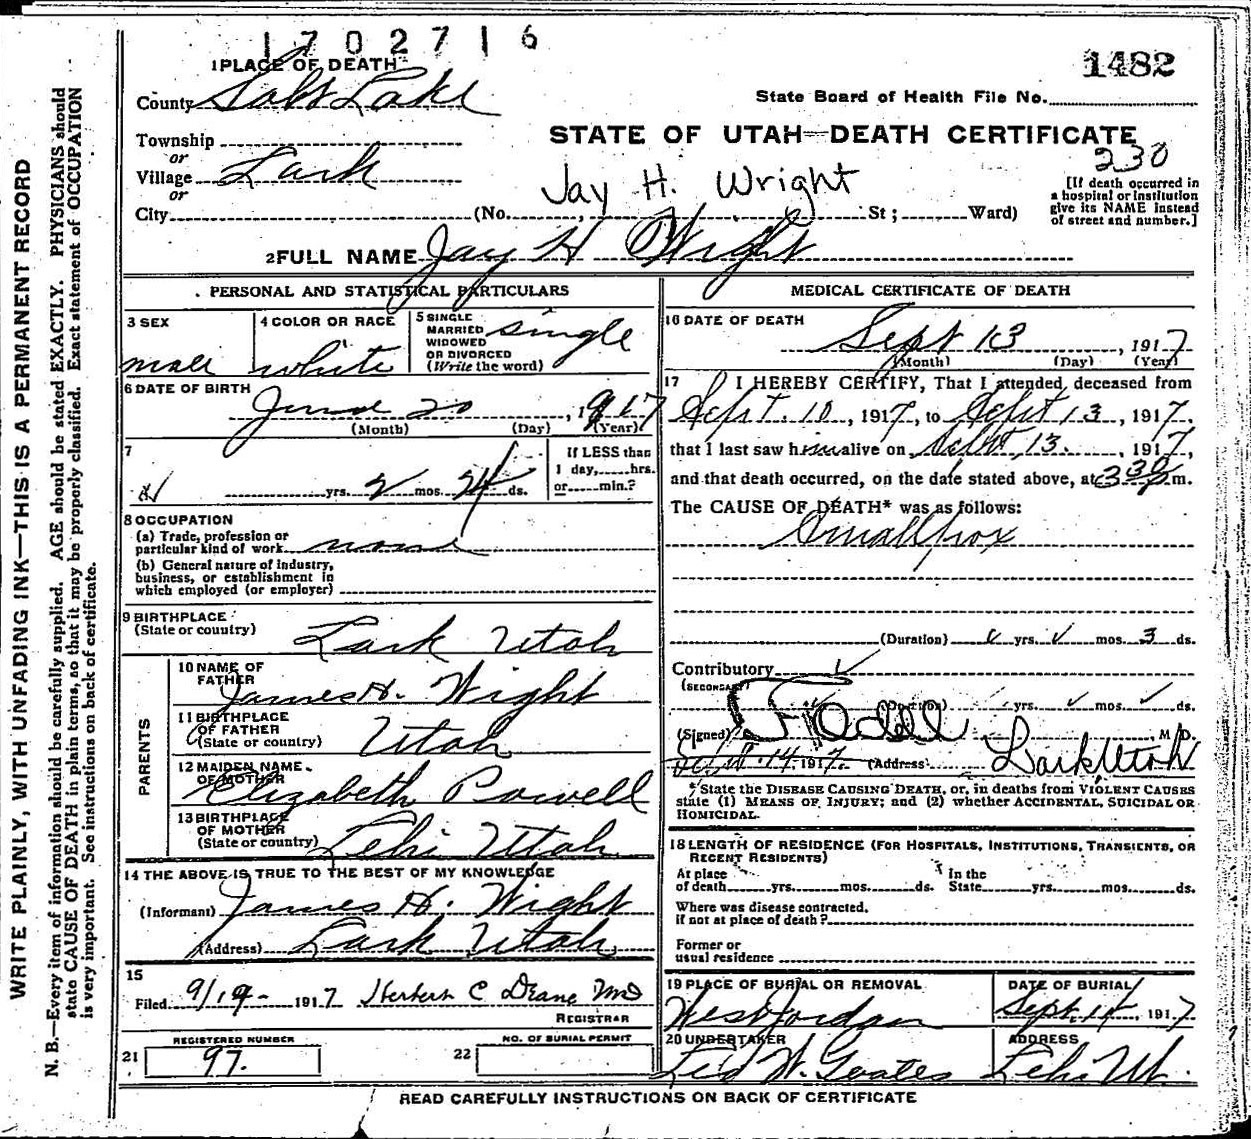 1 7 0 2 7 1 6
1482
1 PLACE OF DEATH
County Salt Lake
State Board of Health File No.
Township
or
Village Lark
or
STATE OF UTAH—DEATH CERTIFICATE
230
Jay H. Wright
City (No. St ; Ward)
[If death occurred in
a hospital or institution
give its NAME instead
of street and number.]
2 FULL NAME Jay H Wright
PERSONAL AND STATISTICAL PARTICULARS
3 SEX
male
4 COLOR OR RACE
white
5 SINGLE
MARRIED
WIDOWED
OR DIVORCED
(Write the word)
single
6 DATE OF BIRTH
June 20, 1917
(Month) (Day) (Year)
7
yrs. 2 mos. 24 ds.
If LESS than
1 day, hrs.
or min.?
8 OCCUPATION
(a) Trade, profession or
particular kind of work none
(b) General nature of industry,
business, or establishment in
which employed (or employer)
9 BIRTHPLACE
(State or country) Lark Utah
PARENTS
10 NAME OF
FATHER
James H. Wight
11 BIRTHPLACE
OF FATHER
(State or country) Utah
12 MAIDEN NAME
OF MOTHER
Elizabeth Powell
13 BIRTHPLACE
OF MOTHER
(State or country) Lehi Utah
14 THE ABOVE IS TRUE TO THE BEST OF MY KNOWLEDGE
(Informant) James H. Wight
(Address) Lark Utah
15
Filed 9/19 1917 Herbert C Deane MD
REGISTRAR
REGISTERED NUMBER
21 97.
NO. OF BURIAL PERMIT
22
MEDICAL CERTIFICATE OF DEATH
16 DATE OF DEATH
Sept 13, 1917
(Month) (Day) (Year)
17 I HEREBY CERTIFY, That I attended deceased from
Sept. 10, 1917, to Sept 13, 1917,
that I last saw him alive on Sept 13. 1917,
and that death occurred, on the date stated above, at 3 30 p.m.
The CAUSE OF DEATH* was as follows:
Smallpox
(Duration) yrs. mos. 3 ds.
Contributory
(SECONDARY)
(Duration) yrs. mos. ds.
(Signed) M D.
14, 1917. (Address) Lark Utah
*State the DISEASE CAUSING DEATH, or, in deaths from VIOLENT CAUSES
state (1) MEANS OF INJURY; and (2) whether ACCIDENTAL, SUICIDAL OR
HOMICIDAL.
18 LENGTH OF RESIDENCE (FOR HOSPITALS, INSTITUTIONS, TRANSIENTS, OR
RECENT RESIDENTS)
At place
of death yrs. mos. ds.
In the
State yrs. mos. ds.
Where was disease contracted,
if not at place of death?
Former or
usual residence
19 PLACE OF BURIAL OR REMOVAL
West Jordan
DATE OF BURIAL
Sept. 14, 1917.
20 UNDERTAKER
W. Goates
ADDRESS
Lehi Ut.
READ CAREFULLY INSTRUCTIONS ON BACK OF CERTIFICATE
WRITE PLAINLY, WITH UNFADING INK—THIS IS A PERMANENT RECORD
N. B.—Every item of information should be carefully supplied. AGE should be stated EXACTLY. PHYSICIANS should
state CAUSE OF DEATH in plain terms, so that it may be properly classified. Exact statement of OCCUPATION
is very important. See instructions on back of certificate.